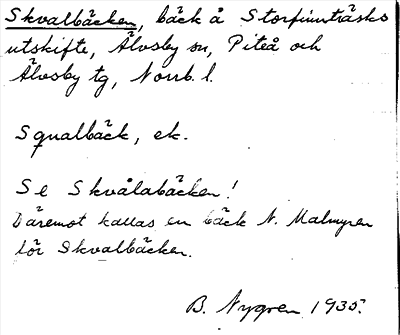 Skvalbäcken, bäck å Storfinnträsks
utskifte, Älvsby sn, Piteå och
Älvsby tg, Norrb. l.
Squalbäck, ek.
Se Skvålabäcken!
Däremot kallas en bäck N. Malmyren
för Skvalbäcken.
B. Nygren 1935.